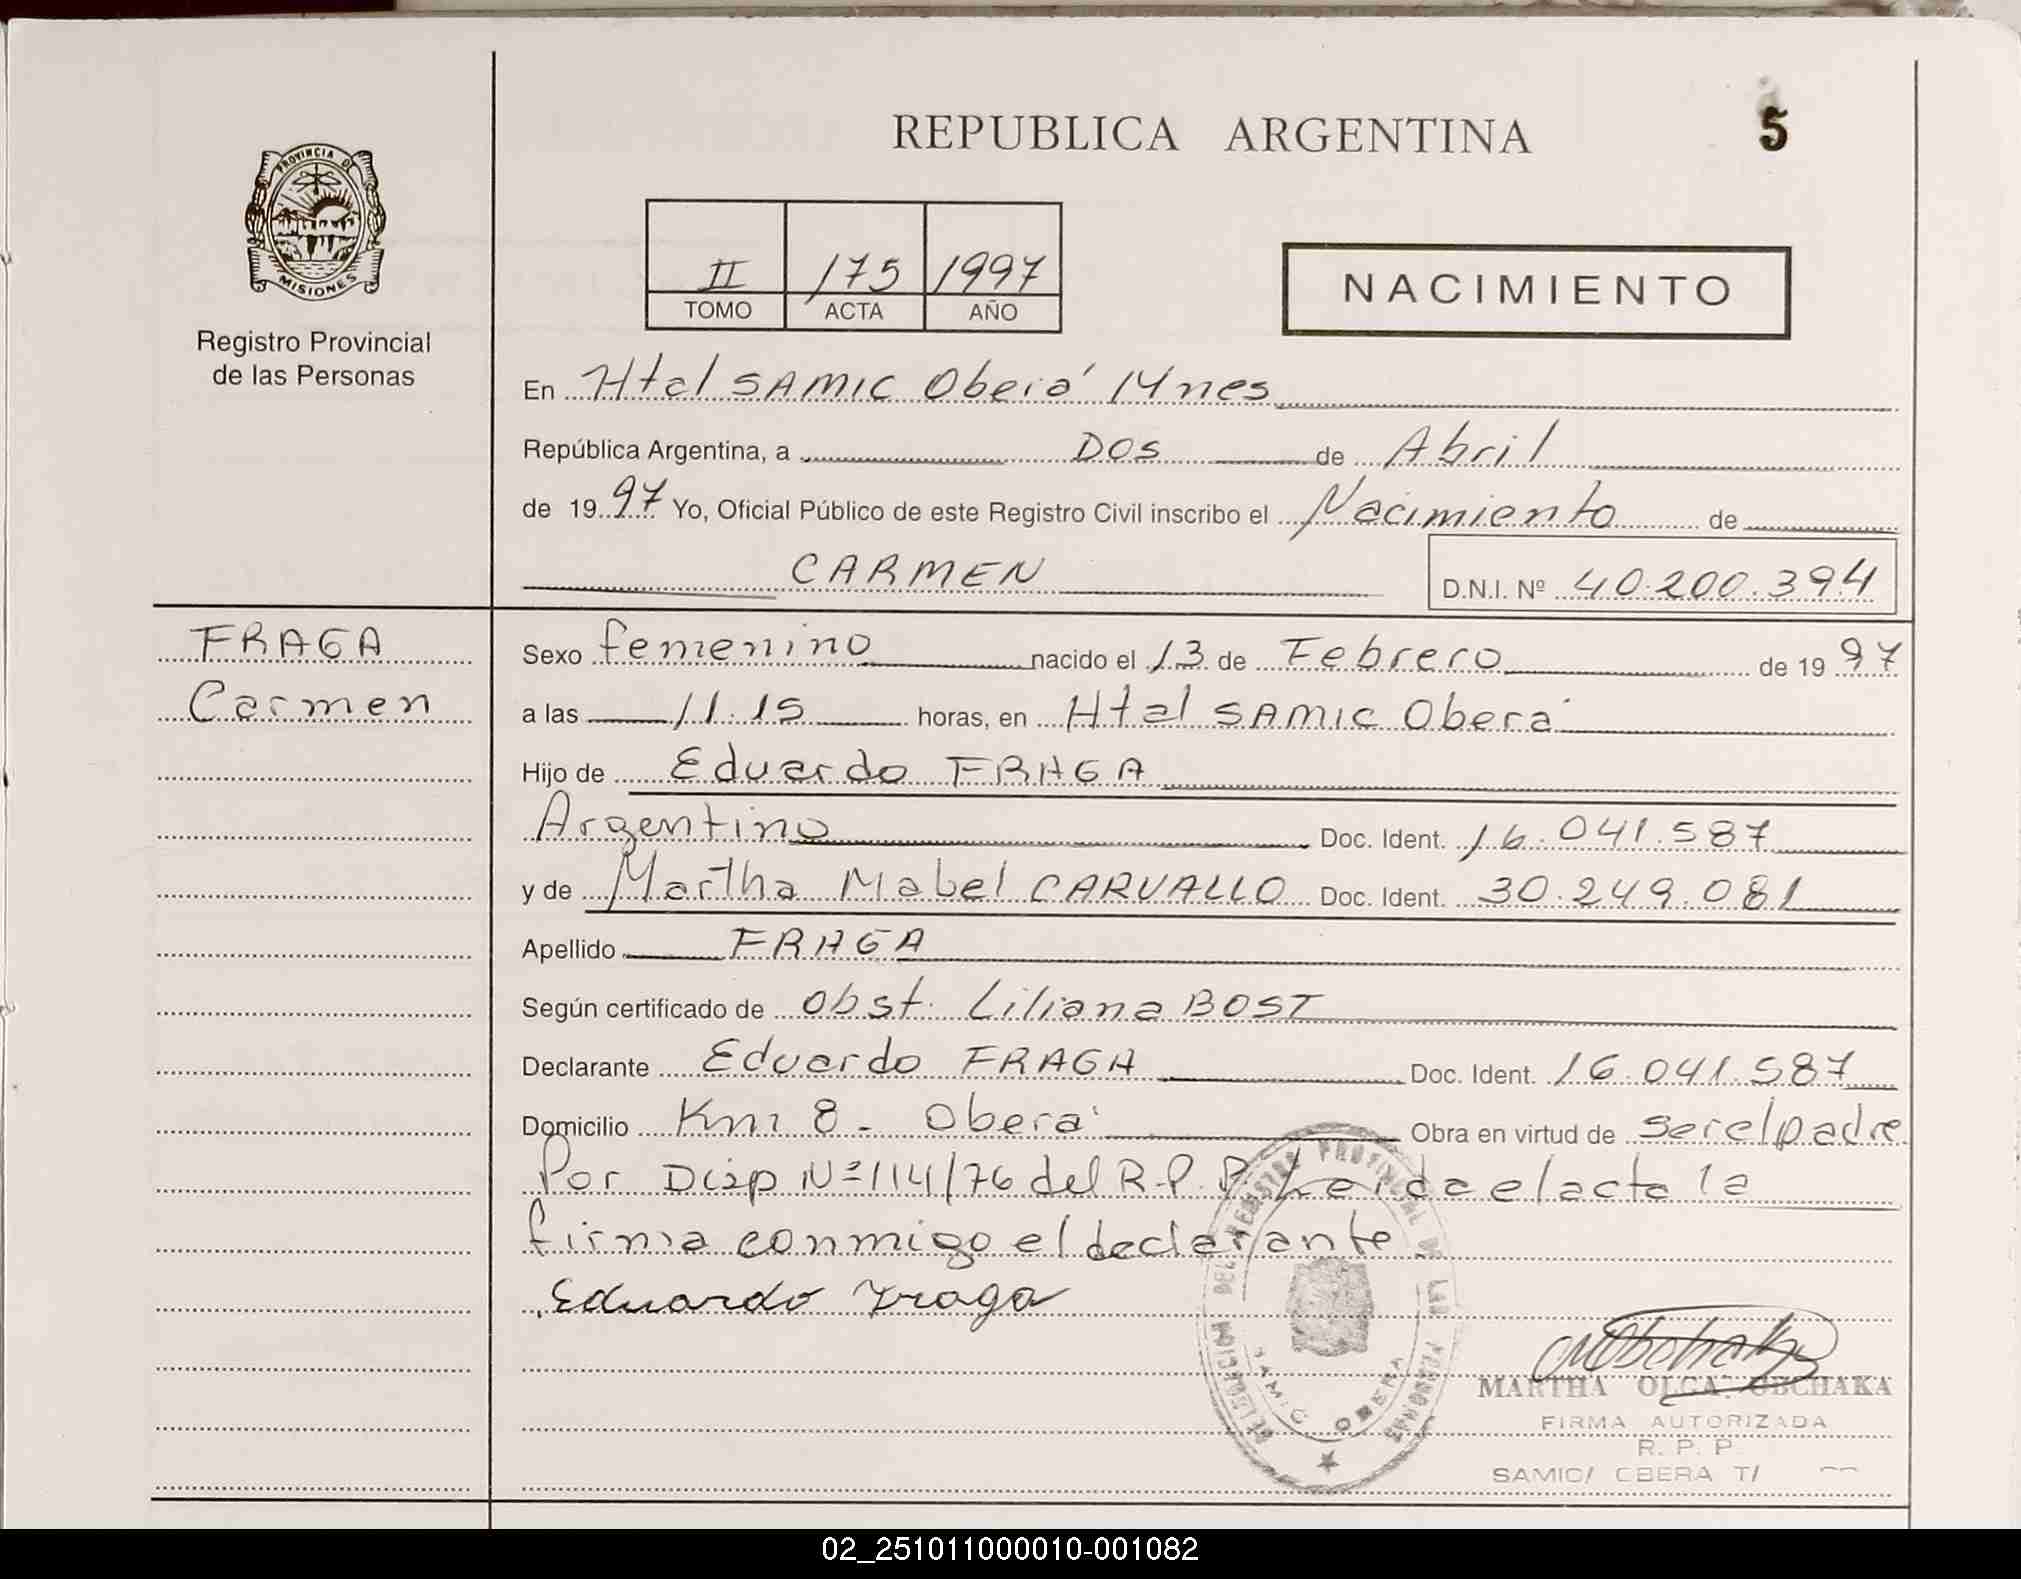 REPUBLICA ARGENTINA
5
PROVINCIA DE
MISIONES
Registro Provincial
de las Personas
II 175 1997
TOMO ACTA AÑO
NACIMIENTO
En Htal SAMIC Oberá Mnes
República Argentina, a DOS de Abril
de 1997 Yo, Oficial Público de este Registro Civil inscribo el Nacimiento de
CARMEN D.N.I. Nº 40.200.394
FRAGA
Carmen
Sexo femenino nacido el 13 de Febrero de 1997
a las 11.15 horas, en Htal SAMIC Oberá
Hijo de Eduardo FRAGA
Argentino Doc. Ident. 16.041.587
y de Martha Mabel CARVALLO Doc. Ident. 30.249.081
Apellido FRAGA
Según certificado de Obst. Liliana BOST
Declarante Eduardo FRAGA Doc. Ident. 16.041.587
Domicilio Km 8 - Oberá Obra en virtud de ser el padre
Por Disp Nº 114/76 del R.P.P. Leida el acta la
firma conmigo el declarante
Eduardo Fraga
DELEGACION DEL REGISTRO PROVINCIAL DE LAS PERSONAS
SAMIC OBERA
MARTHA OLGA OBCHAKA
FIRMA AUTORIZADA
R. P. P.
SAMIC/ OBERA T/
02_251011000010-001082